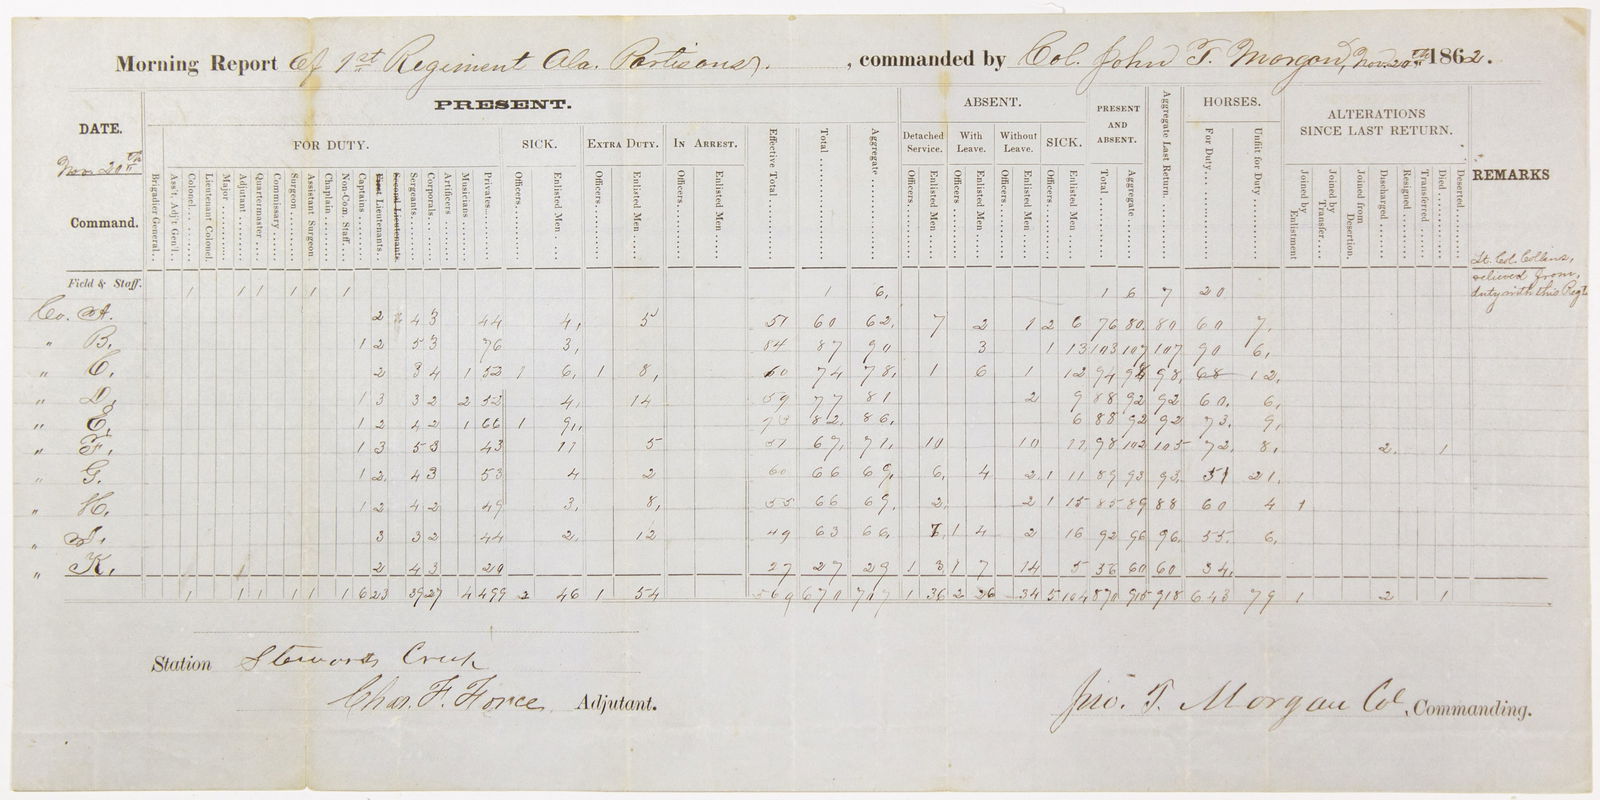 Morning Report Of 1st Regiment Ala. Partisans. , commanded by Col. John T. Morgan, Nov. 20th 1862.
DATE. PRESENT. ABSENT. PRESENT AND ABSENT. Aggregate Last Return. HORSES. ALTERATIONS SINCE LAST RETURN. REMARKS
Nov. 20th FOR DUTY. SICK. EXTRA DUTY. IN ARREST. Effective Total. Total Aggregate Detached Service. With Leave. Without Leave. SICK. Total Aggregate For Duty. Unfit for Duty
Command. Brigadier General. Ass't Adj't Gen'l. Colonel. Lieutenant Colonel. Major Adjutant Quartermaster Commissary Surgeon Assistant Surgeon. Chaplain Non-Com. Staff. Captains First Lieutenants. Second Lieutenants. Sergeants. Corporals. Artificers Musicians Privates. Officers. Enlisted Men Officers. Enlisted Men Officers. Enlisted Men Officers. Enlisted Men Officers. Enlisted Men Officers. Enlisted Men Officers. Enlisted Men Joined by Enlistment Joined by Transfer. Joined from Desertion. Discharged Resigned Transferred Died Deserted.
Lt. Col. Collins, relieved from duty with this Regt.
Field & Staff. 1 1 1 1 1 1 1 6, 1 6 7 20
Co. A. 2 4 3 44 4, 5 51 60 62, 7 2 1 2 6 76 80, 80 60 7,
" B. 1 2 5 3 76 3, 84 87 90 3 1 13 103 107 107 90 6,
" C. 2 3 4 1 52 1 6, 1 8, 60 74 78, 1 6 1 12 94 98 98, 68 12,
" D. 1 3 3 2 2 52 4, 14 59 77 81 2 9 88 92 92 60, 6,
" E. 1 2 4 2 1 66 1 9, 73 82, 86, 6 88 92 92 73, 9,
" F. 1 3 5 3 43 11 5 51 67, 71, 10 10 11 98 102 105 72, 8, 2. 1
" G. 1 2, 4 3 53 4 2 60 66 69, 6, 4 2, 1 11 89 93 93, 51 21,
" H. 1 2 4 2 49 3, 8, 55 66 69, 2, 2 1 15 85 89 88 60 4 1
" I. 3 3 2 44 2, 12 49 63 66, 7, 1 4 2 16 92 96 96, 55 6,
" K. 2 4 3 20 27 27 29 1 3 1 7 14 5 56 60 60 34,
1 1 1 1 1 1 6 23 39 27 4 499 2 46 1 54 569 670 707 1 36 2 26 34 5 104 870 915 918 643 79 1 2 1
Station Stewarts Creek
Chas. F. Force Adjutant.
Jno. T. Morgan Col , Commanding.